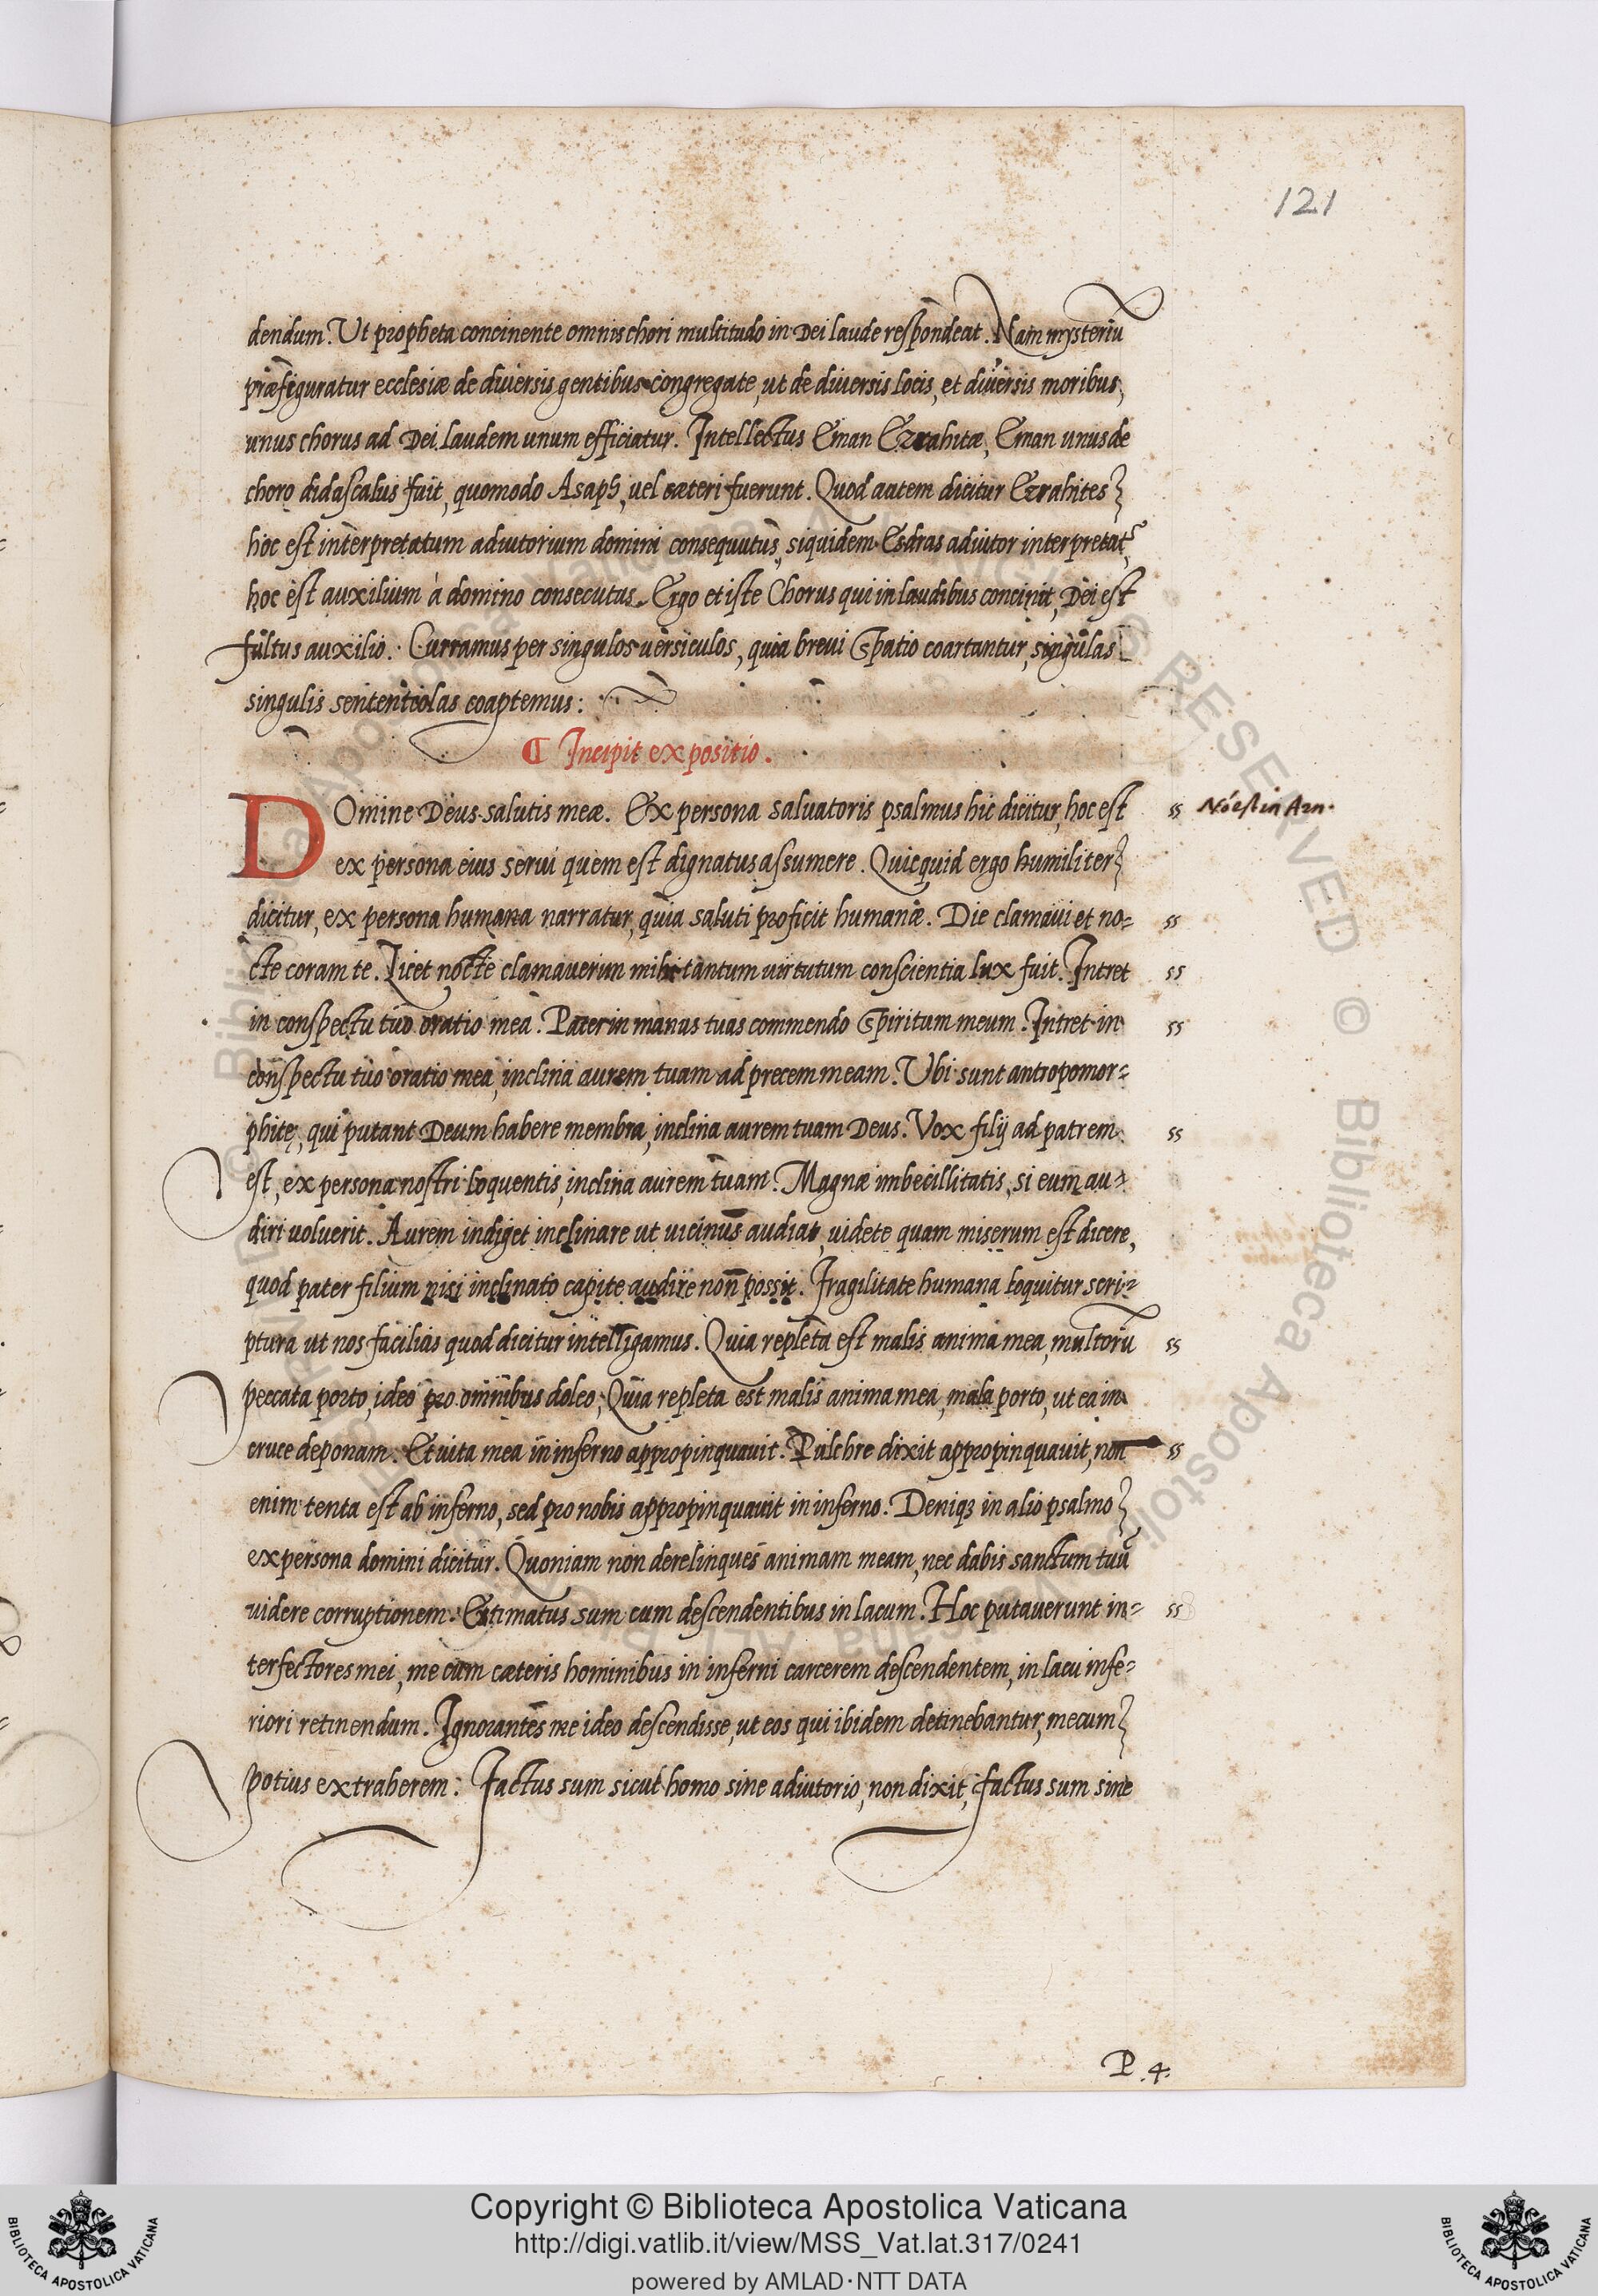 121
dendum. Ut propheta concinente omnis chori multitudo in Dei laude respondeat. Nam mysteriū
præfiguratur ecclesiæ de diuersis gentibus congregate, ut de diuersis locis, et diuersis moribus,
unus chorus ad Dei laudem unum efficiatur. Intellectus Eman Ezrahitæ, Eman unus de
choro didascalus fuit, quomodo Asaph, uel cæteri fuerunt. Quod autem dicitur Ezrahites
hoc est interpretatum adiutorium domini consequutus, siquidem Esdras adiutor interpretat᷑
hoc est auxilium à domino consecutus. Ergo et iste Chorus qui in laudibus concinit, Dei est
fultus auxilio. Curramus per singulos uersiculos, quia breui spatio coartantur, singulas
singulis sententiolas coaptemus:
¶ Incipit expositio.
DOmine Deus salutis meæ. Ex persona saluatoris psalmus hic dicitur, hoc est
ss Nō est in Azn.
ex persona eius serui quem est dignatus assumere. Quicquid ergo humiliter
dicitur, ex persona humana narratur, quia saluti proficit humanæ. Die clamaui et no-
ss
cte coram te. Licet nocte clamauerim mihi tantum uirtutum conscientia lux fuit. Intret
ss
in conspectu tuo oratio mea. Pater in manus tuas commendo spiritum meum. Intret in
ss
conspectu tuo oratio mea, inclina aurem tuam ad precem meam. Ubi sunt antropomor-
phitę, qui putant Deum habere membra, inclina aurem tuam Deus. Vox filij ad patrem
ss
est, ex persona nostri loquentis, inclina aurem tuam. Magnæ imbecillitatis, si eum au-
diri uoluerit. Aurem indiget inclinare ut uicinus audiat, uidete quam miserum est dicere,
quod pater filium nisi inclinato capite audire non possit. Fragilitate humana loquitur scri-
ptura ut nos facilius quod dicitur intelligamus. Quia repleta est malis anima mea, multorū
ss
peccata porto, ideo pro omnibus doleo, Quia repleta est malis anima mea, mala porto, ut ea in
cruce deponam. Et uita mea in inferno appropinquauit. Pulchre dixit appropinquauit, non
ss
enim tenta est ab inferno, sed pro nobis appropinquauit in inferno. Deniqȝ in alio psalmo
ex persona domini dicitur. Quoniam non derelinques animam meam, nec dabis sanctum tuū
uidere corruptionem. Estimatus sum cum descendentibus in lacum. Hoc putauerunt in-
ss
terfectores mei, me cum cæteris hominibus in inferni carcerem descendentem, in lacu infe-
riori retinendum. Ignorantes me ideo descendisse, ut eos qui ibidem detinebantur, mecum
potius extraherem. Factus sum sicut homo sine adiutorio, non dixit, factus sum sine
P.4.
Copyright © Biblioteca Apostolica Vaticana
http://digi.vatlib.it/view/MSS_Vat.lat.317/0241
powered by AMLAD·NTT DATA
BIBLIOTECA APOSTOLICA VATICANA
BIBLIOTECA APOSTOLICA VATICANA